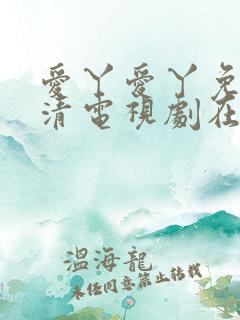 愛丫愛丫免
清電視劇在
溫海龍
未任同意禁止轉載